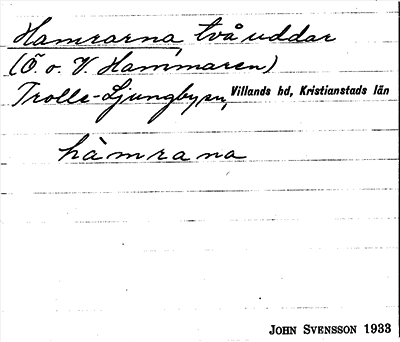 Hamrarna, två uddar
(Ö. o. V. Hammaren)
Trolle-Ljungby sn, Villands hd, Kristianstads län
hàmrana
JOHN SVENSSON 1933